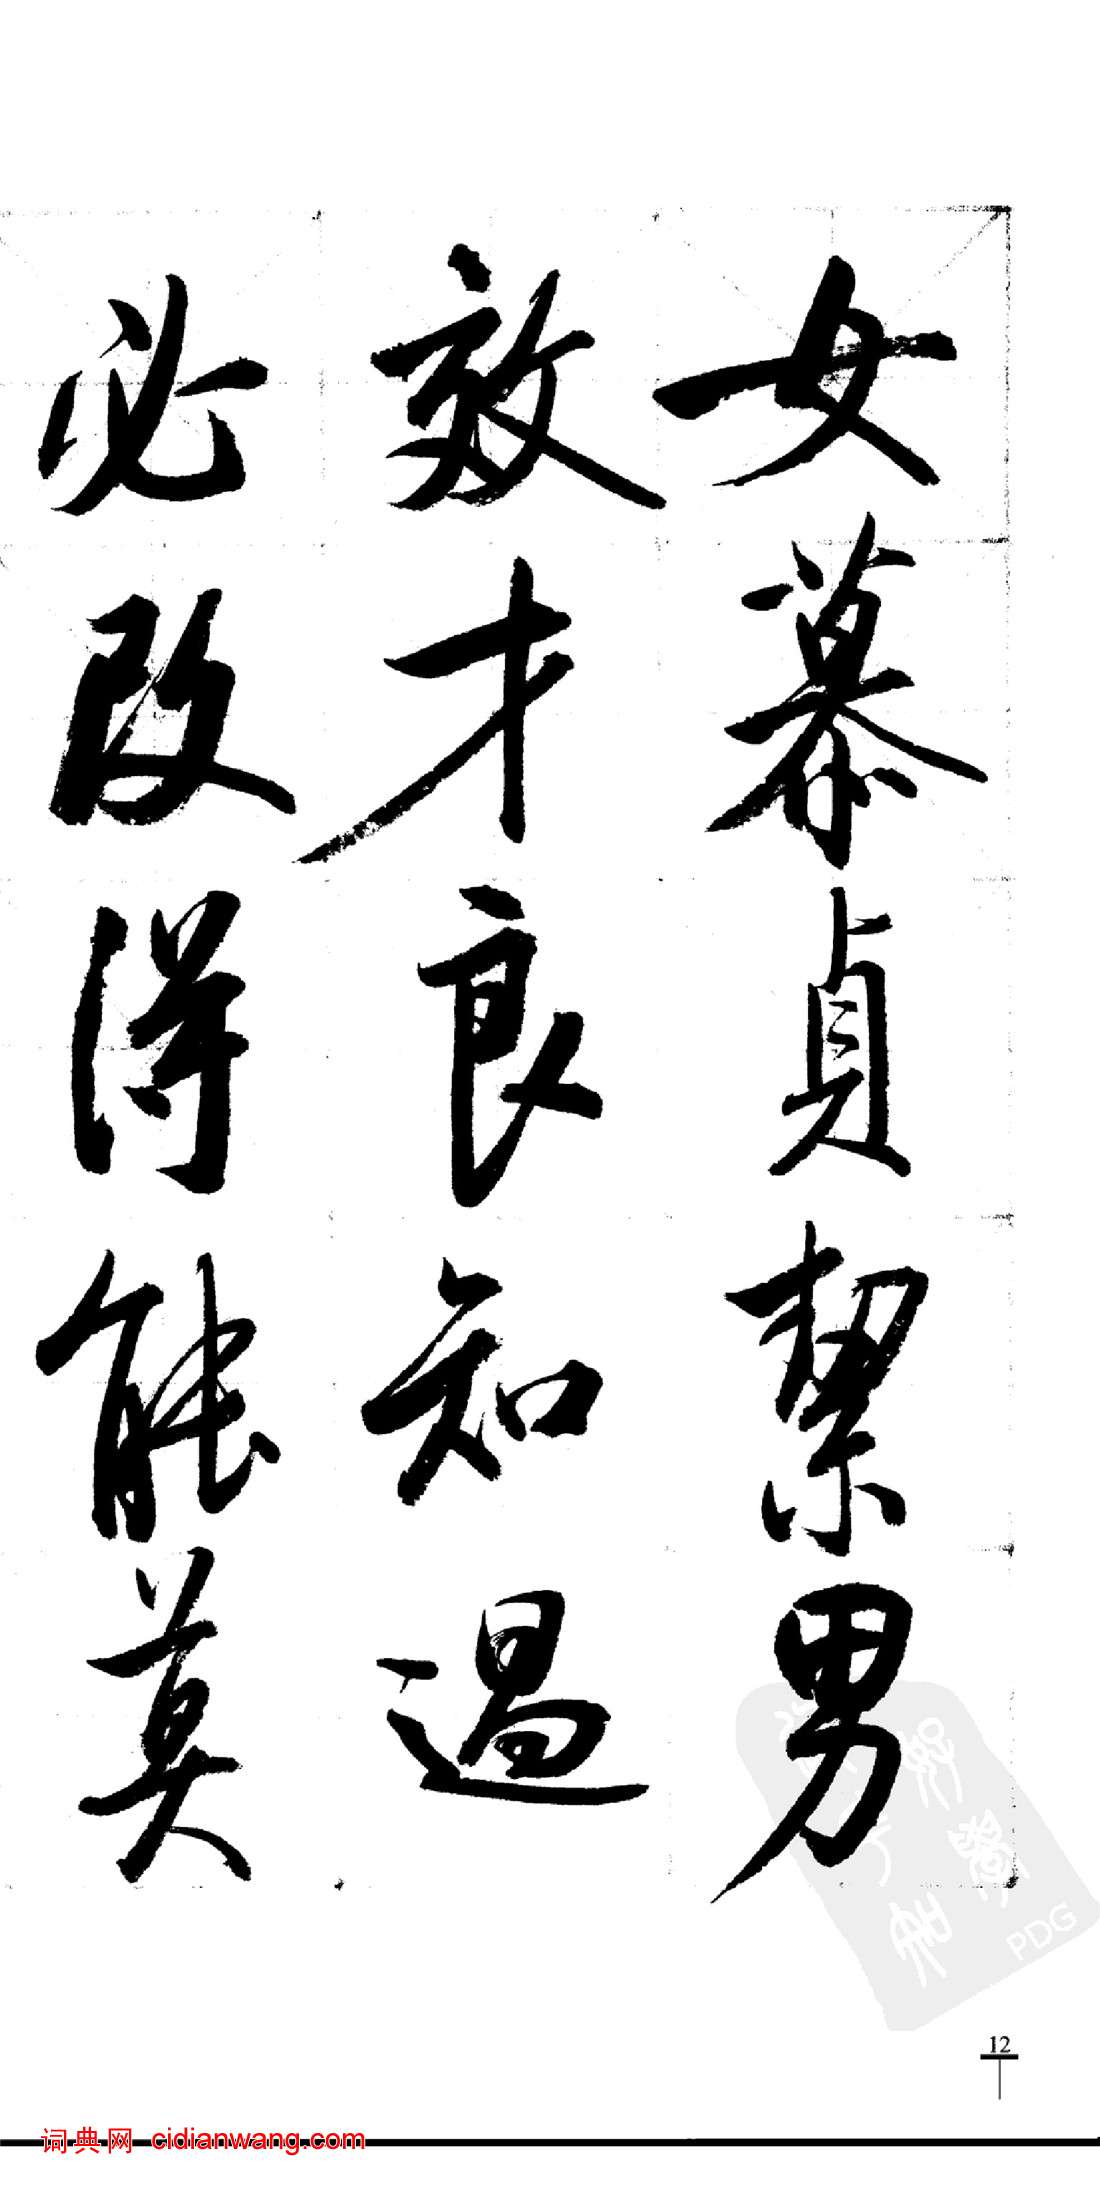 女慕貞絜男
效才良知過
必改得能莫
12
PDG
词典网 cidianwang.com